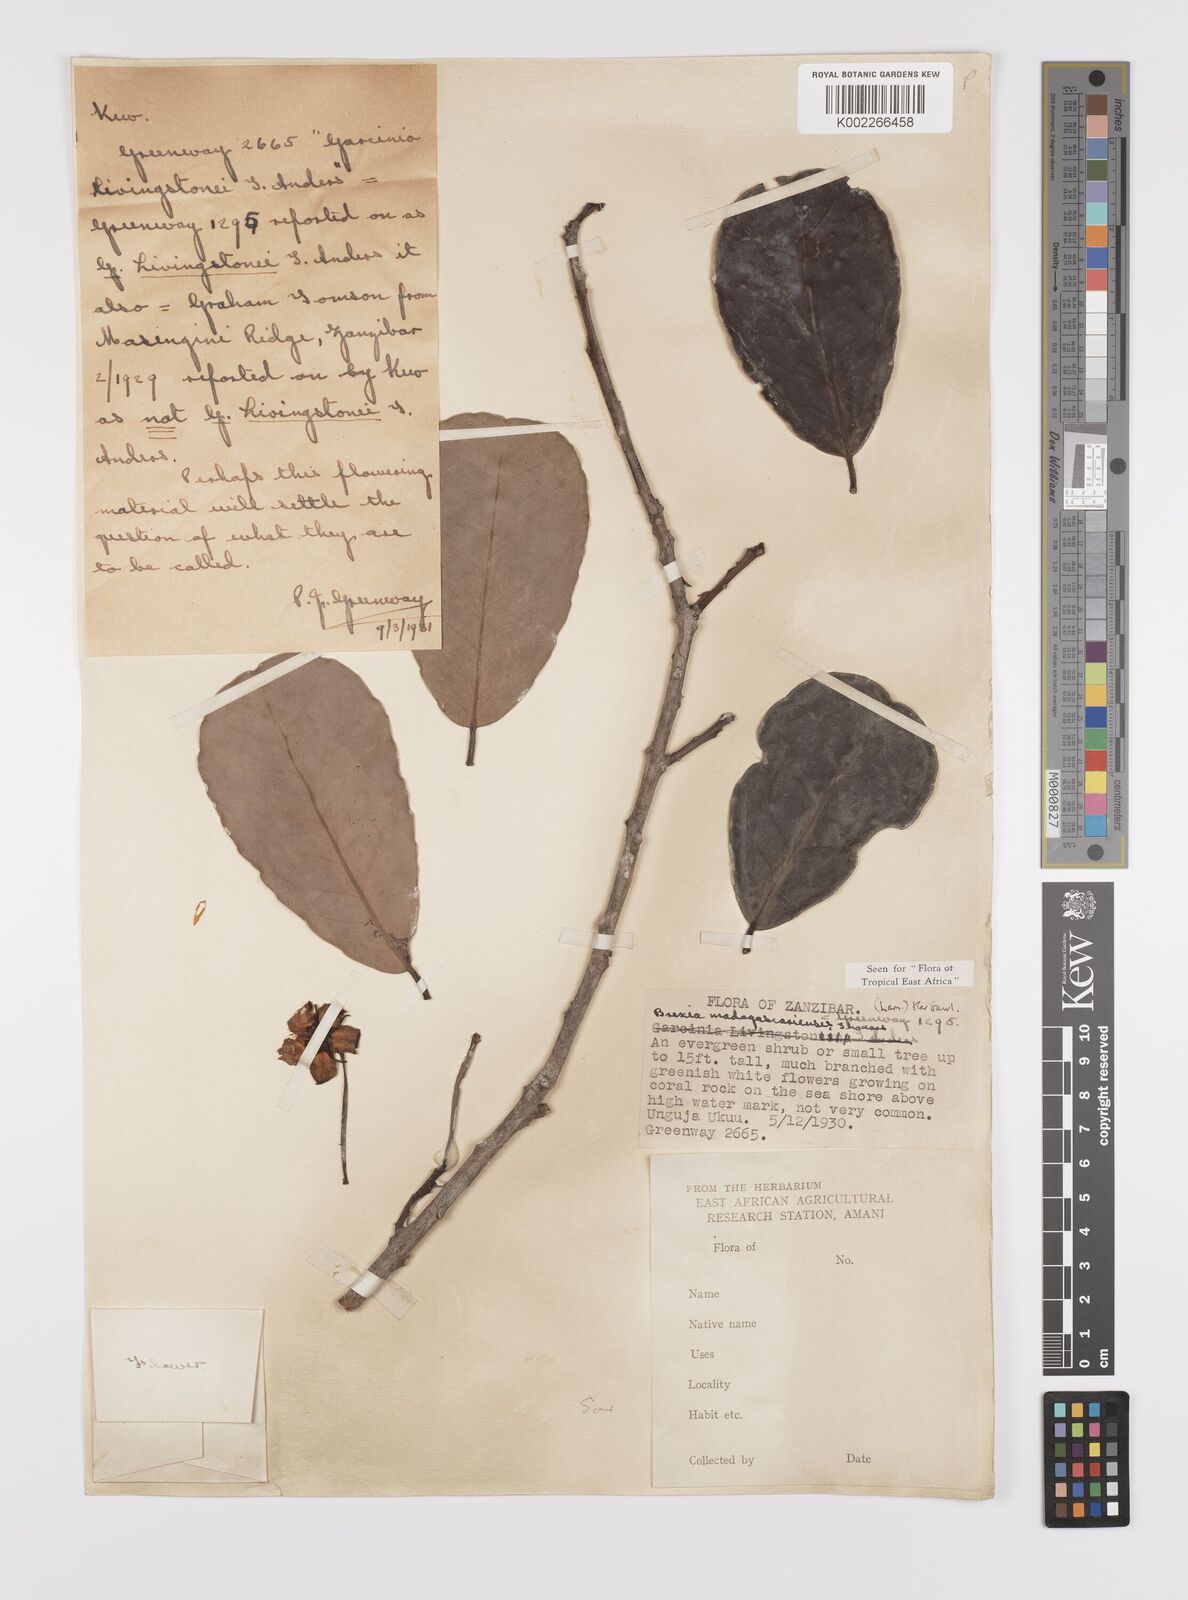 ROYAL BOTANIC GARDENS KEW
K002266458
P
Kew.
Greenway 2665 "Garcinia
Livingstonei T. Anders" =
Greenway 1295 reported on as
G. Livingstonei T. Anders it
also = Graham Tomson from
Masingini Ridge, Zanzibar
2/1929 reported on by Kew
as not G. Livingstonei T.
Anders.
Perhaps this flowering
material will settle the
question of what they are
to be called.
P. J. Greenway
9/3/1931
Seen for "Flora of
Tropical East Africa"
FLORA OF ZANZIBAR. (Lam.) Ker Gawl.
Brexia madagascariensis Thouars = Greenway 1295.
Garcinia Livingstonei
An evergreen shrub or small tree up
to 15ft. tall, much branched with
greenish white flowers growing on
coral rock on the sea shore above
high water mark, not very common.
Unguja Ukuu. 5/12/1930.
Greenway 2665.
FROM THE HERBARIUM
EAST AFRICAN AGRICULTURAL
RESEARCH STATION, AMANI
Flora of
No.
Name
Native name
Uses
Locality
Habit etc.
Collected by Date
Flower.
inches
Density
Don Williams
M000827
centimeters
Kew
Royal Botanic Gardens
0 1 2 3 4 5 6 7 8 9 10
cm
copyright reserved